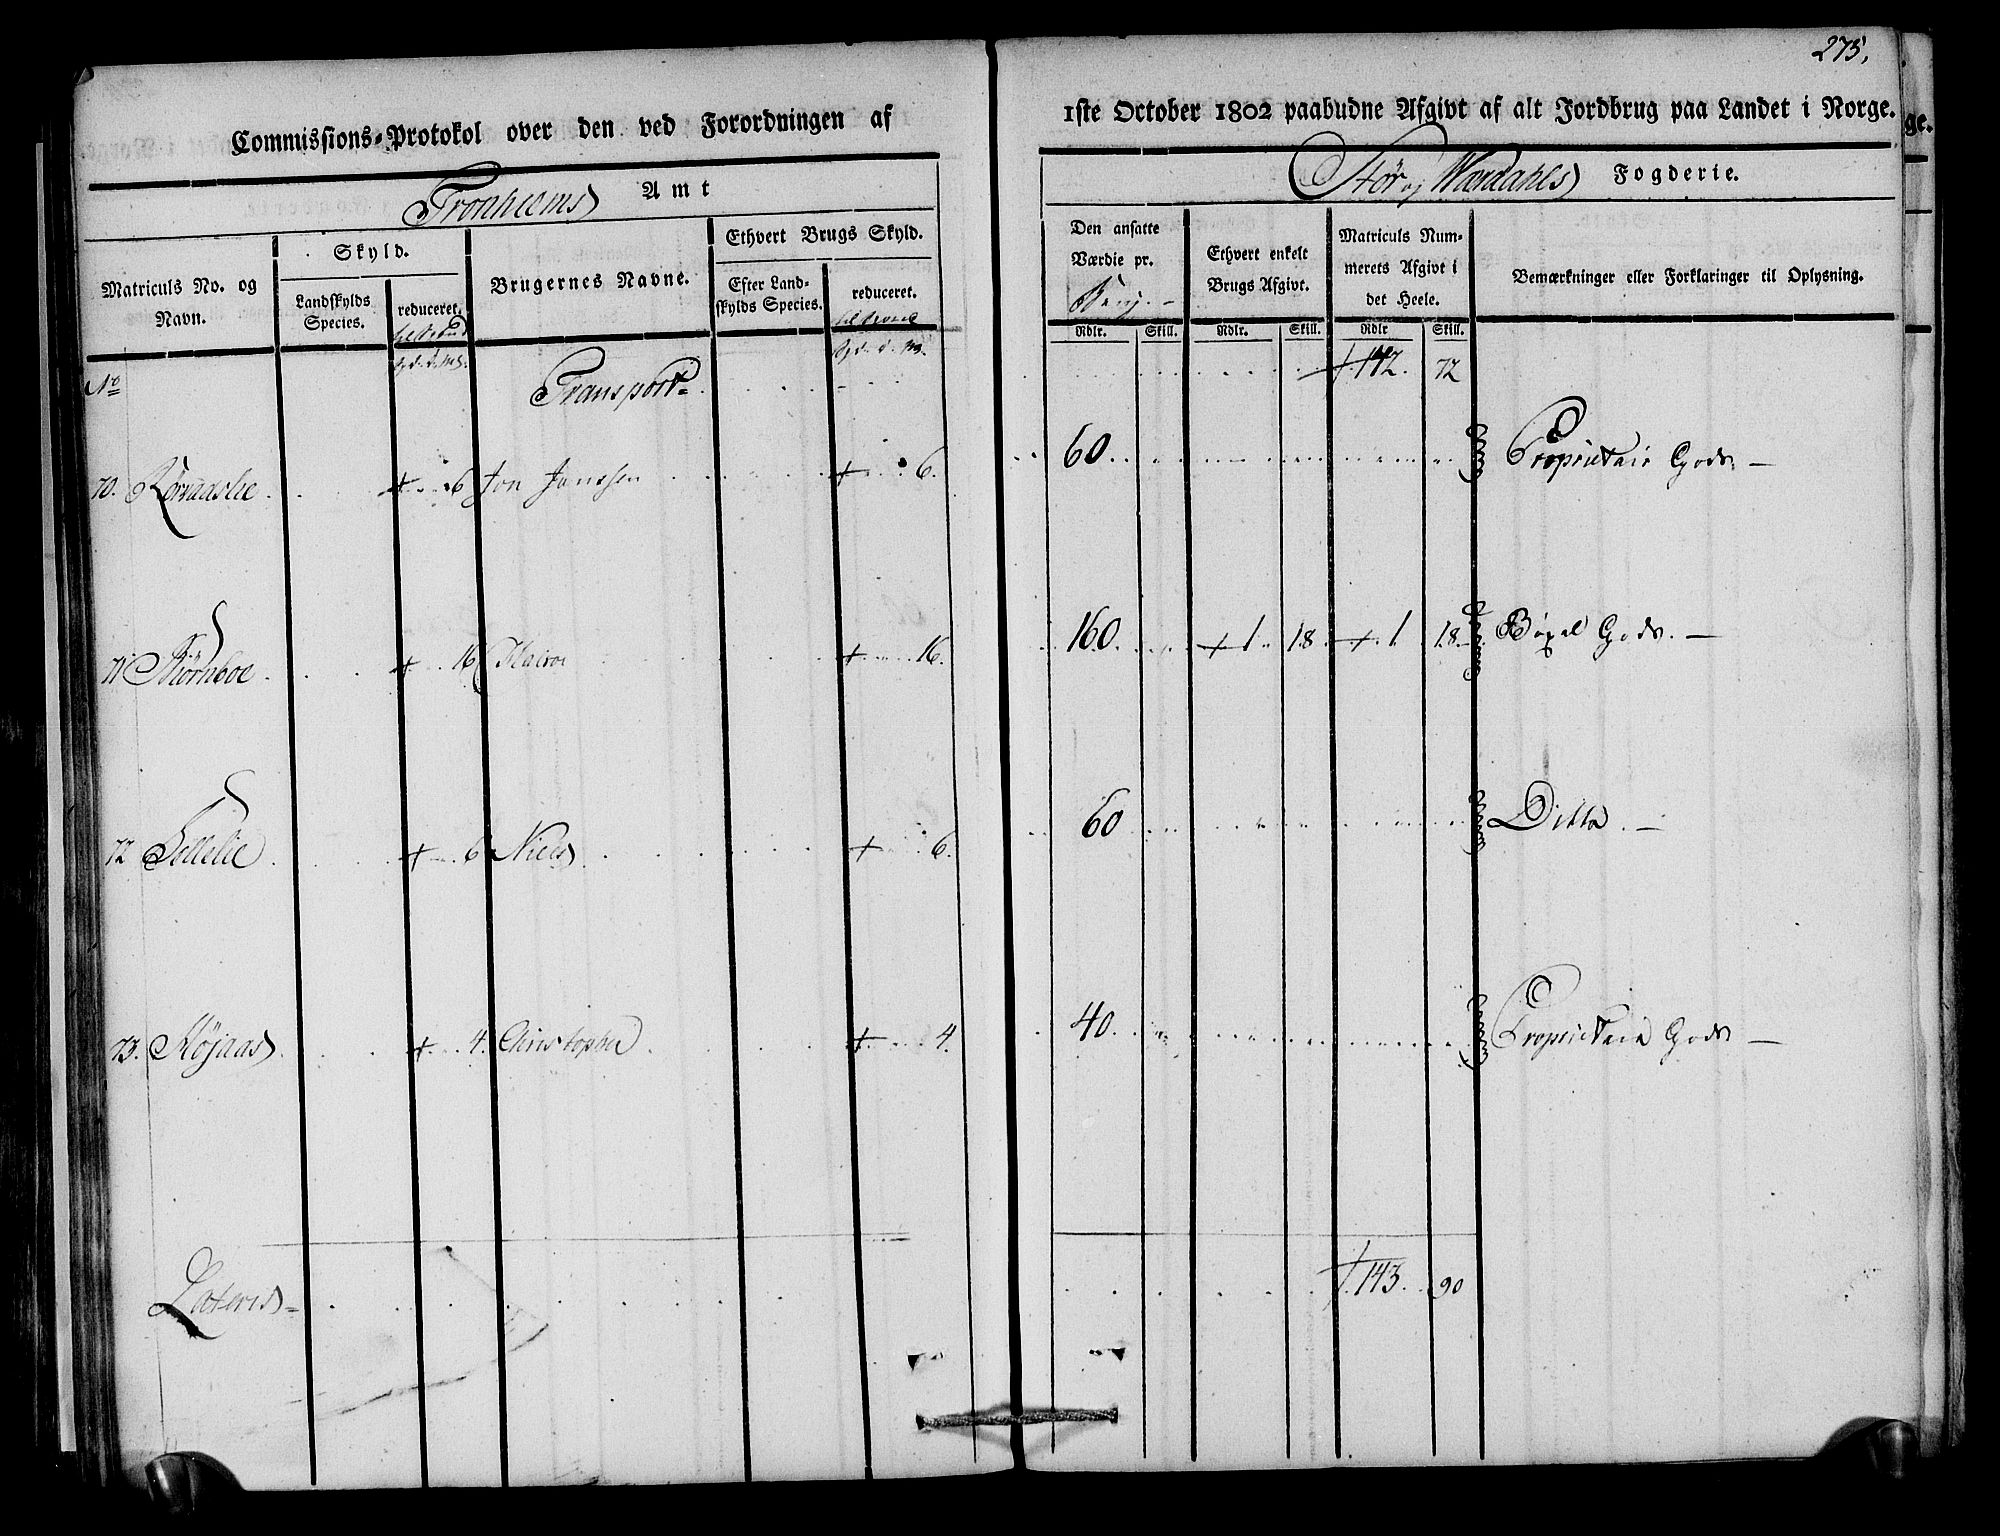 275.
Commissions-Protokol over den ved Forordningen af 1ste October 1802 paabudne Afgivt af alt Jordbrug paa Landet i Norge.
Tronhiems Amt
Stør og Wærdahls Fogderie.
Matriculs No. og Navn.
Skyld.
Landskylds Species.
reduceret.
Brugernes Navne.
Ethvert Brugs Skyld.
Efter Landskylds Species.
reduceret.
Den ansatte Værdie pr.
Ethvert enkelt Brugs Afgivt.
Matriculs Nummerets Afgivt i det Heele.
Bemærkninger eller Forklaringer til Oplysning.
Rdlr. Skill. Rdlr. Skill. Rdlr Skill.
No Transport 142. 72
70. + 6 Jon Jonssen + 6. 60. Proprietair Gods
71 Biörnboe + 16 Halvor + 16. 160. + 1 18. + 1 18 Bøxel Gods.
72 + 6 Niels + 6. 60 Ditto
73. + 4. Christopher + 4. 40. Proprietair Gods
Lateris 143. 90